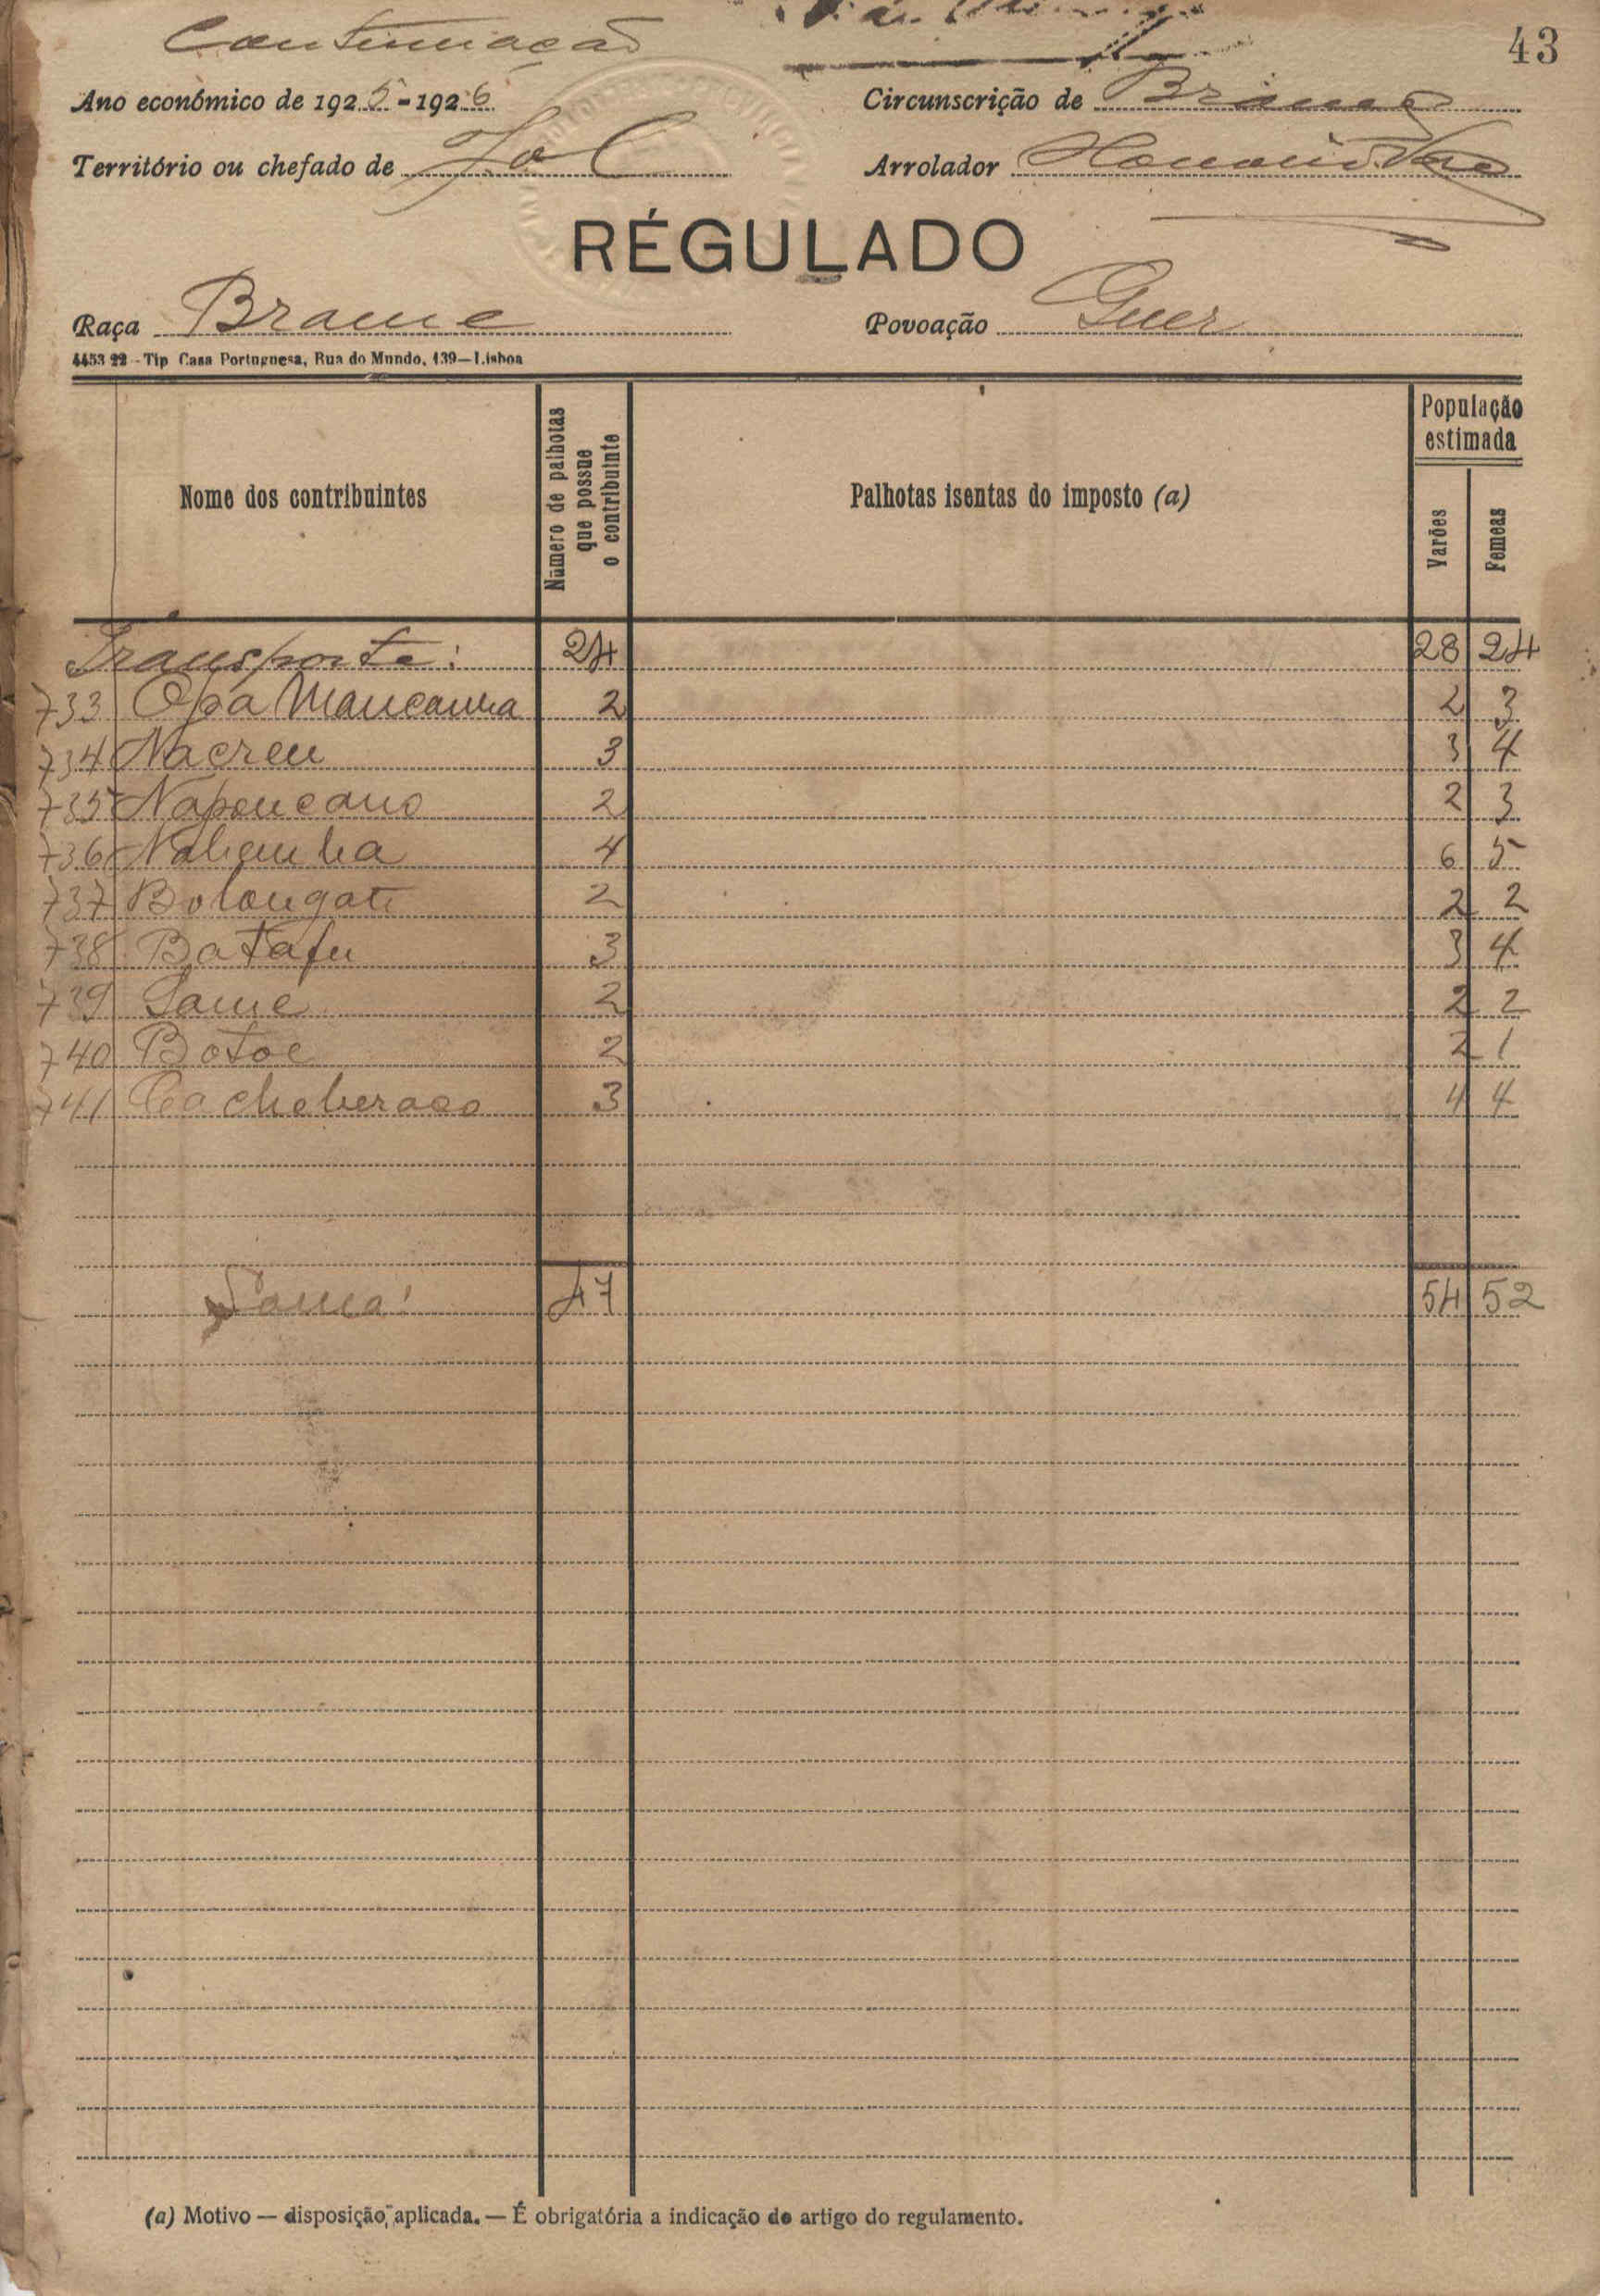 Continuação
43
Ano económico de 1925-1926
Circunscrição de Brame
Território ou chefado de Jol
Arrolador
RÉGULADO
Raça Brame
Povoação Guer
4453 22 - Tip Casa Portuguesa, Rua do Mundo, 139—Lisboa
Nome dos contribuintes
Número de palhotas que possue o contribuinte
Palhotas isentas do imposto (a)
População estimada
Varões
Femeas
Transporte: 24 28 24
733 Opa Mancanha 2 2 3
734 Nacreu 3 3 4
735 Napoucano 2 2 3
736 4 6 5
737 Bolougate 2 2 2
738 Batafu 3 3 4
739 Same 2 2 2
740 Botoe 2 2 1
741 3 4 4
Soma: 47 54 52
(a) Motivo — disposição, aplicada. — É obrigatória a indicação do artigo do regulamento.